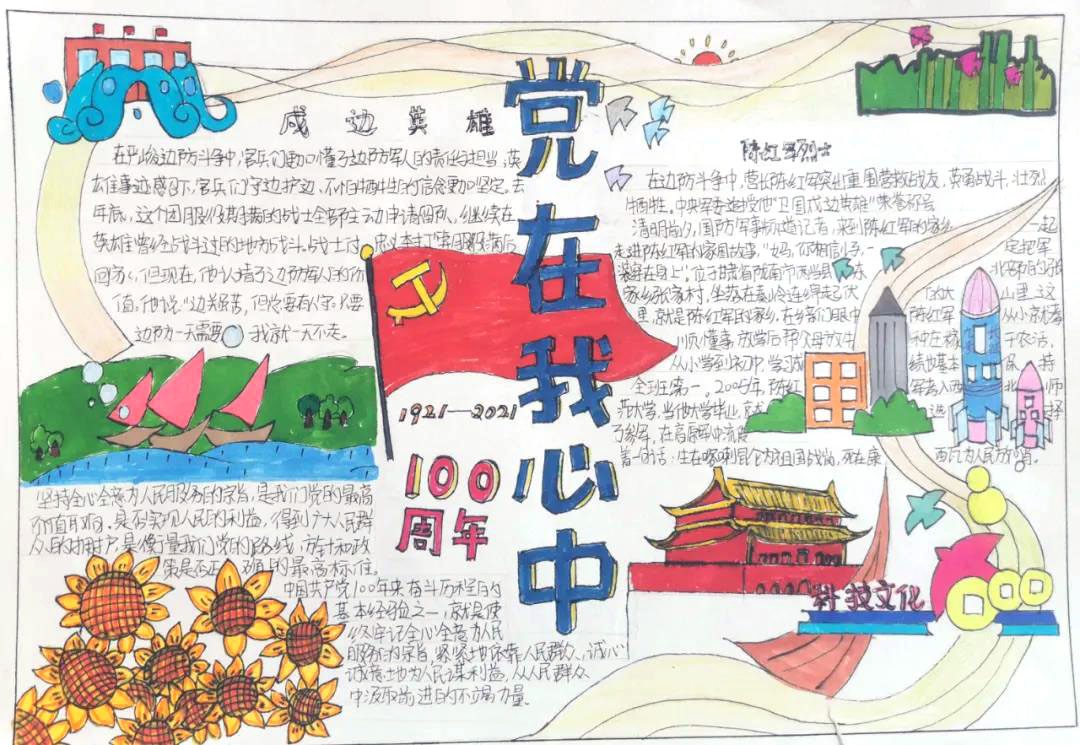 党在我心中
戍边英雄
在严峻边防斗争中,官兵们更加懂了边防军人的责任与担当,英
雄事迹感召下,官兵们守边护边、不怕牺牲的信念更加坚定,去
年底,这个团服役期满的战士全部主动申请留队,继续在
英雄曾经战斗过的地方战斗。战士
服役期满后
回家,但现在,他
了边防军人的
价值,他说:“边关虽苦,但总要有人守,只要
边防一天需要,我就一天不走。
1921—2021
100
周年
坚持全心全意为人民服务的宗旨,是我们党的最高
价值取向,是否实现人民的利益,得到广大人民群
众的拥护是衡量我们党的路线,方针和政
策是否正确的最高标准。
中国共产党100年来奋斗历程的
基本经验之一,就是使
终牢记全心全意为人民
服务的宗旨,紧紧地依靠人民群众,诚心
诚意地为人民谋利益,从人民群众
中汲取前进的不竭力量。
陈红军烈士
在边防斗争中,营长陈红军突出重围营救战友,英勇战斗,壮烈
牺牲。中央军委追授他“卫国戍边英雄”荣誉称号
清明前夕,国防军事频道记者,来到陈红军的家乡 一起
走进陈红军的家国故事,“妈,你相信
定把军
装穿在身上”,位于甘肃省陇南市两当县
北部的张
家乡张家村,坐落在秦岭连绵起伏 的大山里,这
里,就是陈红军的家乡,在乡亲们眼中 陈红军从小就孝
顺懂事,放学后帮父母放牛 种庄稼干农活,
从小学到初中,学习成绩也基本保持
全班第一。2005年,陈红军考入西北师
范大学,当他大学毕业,
选择
了参军,在高原军中流传
着一句话:生在喀喇昆仑为祖国战当,死在康
西瓦为人民放哨。
科技文化